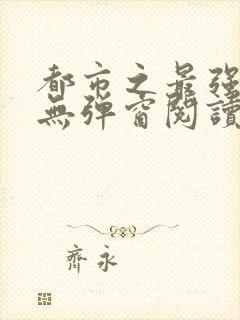 都市之最强
無弹窗閱讀
齊永